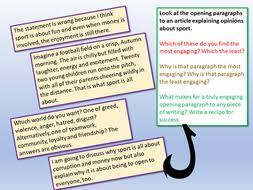 The statement is wrong because I think
sport is about fun and even when money is
involved, the enjoyment is still there.
Imagine a football field on a crisp, Autumn
morning. The air is chilly but filled with
laughter, energy and excitement. Twenty
two young children run onto the pitch,
with all of their parents cheering wildly in
the distance. That is what sport is all
about.
Which world do you want? One of greed,
violence, anger, hatred, disgust?
Alternatively,one of teamwork,
community, loyalty and friendship? The
answers are obvious.
I am going to discuss why sport is all about
corruption and money now but also
explain why it is about being to open to
everyone, too.
Look at the opening paragraphs
to an article explaining opinions
about sport.
Which of these do you find the
most engaging? Which the least?
Why is that paragraph the most
engaging? Why is that paragraph
the least engaging?
What makes for a truly engaging
opening paragraph to any piece
of writing? Write a recipe for
success.